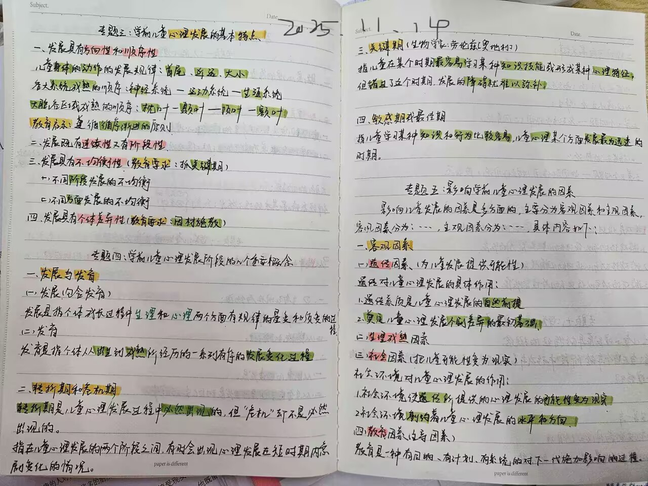 Subject.
Date
2025.11.14
专题三:学前儿童心理发展的基本特点
一、发展具有方向性和顺序性
儿童身体的动作的发展规律:首尾、近远、大小
各大系统成熟的顺序:神经系统—运动系统—生殖系统
大脑各区域成熟的顺序:枕叶—颞叶—顶叶—额叶
教育启示:遵循循序渐进的原则
二、发展既有连续性又有阶段性
三、发展具有不均衡性(教育要求:抓关键期)
一.不同阶段发展的不均衡
二.不同方面发展的不均衡
四、发展具有个体差异性(教育要求:因材施教)
专题四:学前儿童心理发展阶段的几个重要概念
一、发展与发育
(一)发展(包含发育)
发展是指个体成长过程中生理和心理两个方面有规律的量变和质变的过程
(二)发育
发育是指个体从出生到成熟所经历的一系列有序的发展变化过程
二、转折期和危机期
转折期是儿童心理发展过程中必然出现的,但"危机"却不是必然
出现的。
指在儿童心理发展的两个阶段之间,有时会出现心理发展在短时期内急
剧变化的情况。
paper is different
Subject.
Date
三、关键期(生物学家:劳伦兹(奥地利))
指儿童在某个时期最容易学习某种知识技能或形成某种心理特征,
但错过了这个时期,发展的障碍就难以弥补。
四、敏感期或最佳期
指儿童学习某种知识和行为比较容易,儿童心理某个方面发展最为迅速的
时期。
专题五:影响学前儿童心理发展的因素
影响儿童发展的因素是多方面的,主要分为客观因素和主观因素。
客观因素分为:……,主观因素分为:……,具体内容如下:
一、客观因素
(一)遗传因素、(为儿童发展提供可能性)
遗传对儿童心理发展的具体作用:
1.遗传素质是儿童心理发展的自然前提
2.奠定儿童心理发展个别差异的最初基础
(二)生理成熟因素
(三)社会因素(把儿童可能性变为现实)
社会环境对儿童心理发展的作用:
1.社会环境使遗传所提供的心理发展的可能性变为现实
2.社会环境制约着儿童心理发展的水平和方向
(四)教育因素(主导因素)
教育是一种有目的、有计划、有系统的对下一代施加影响的过程。
paper is different